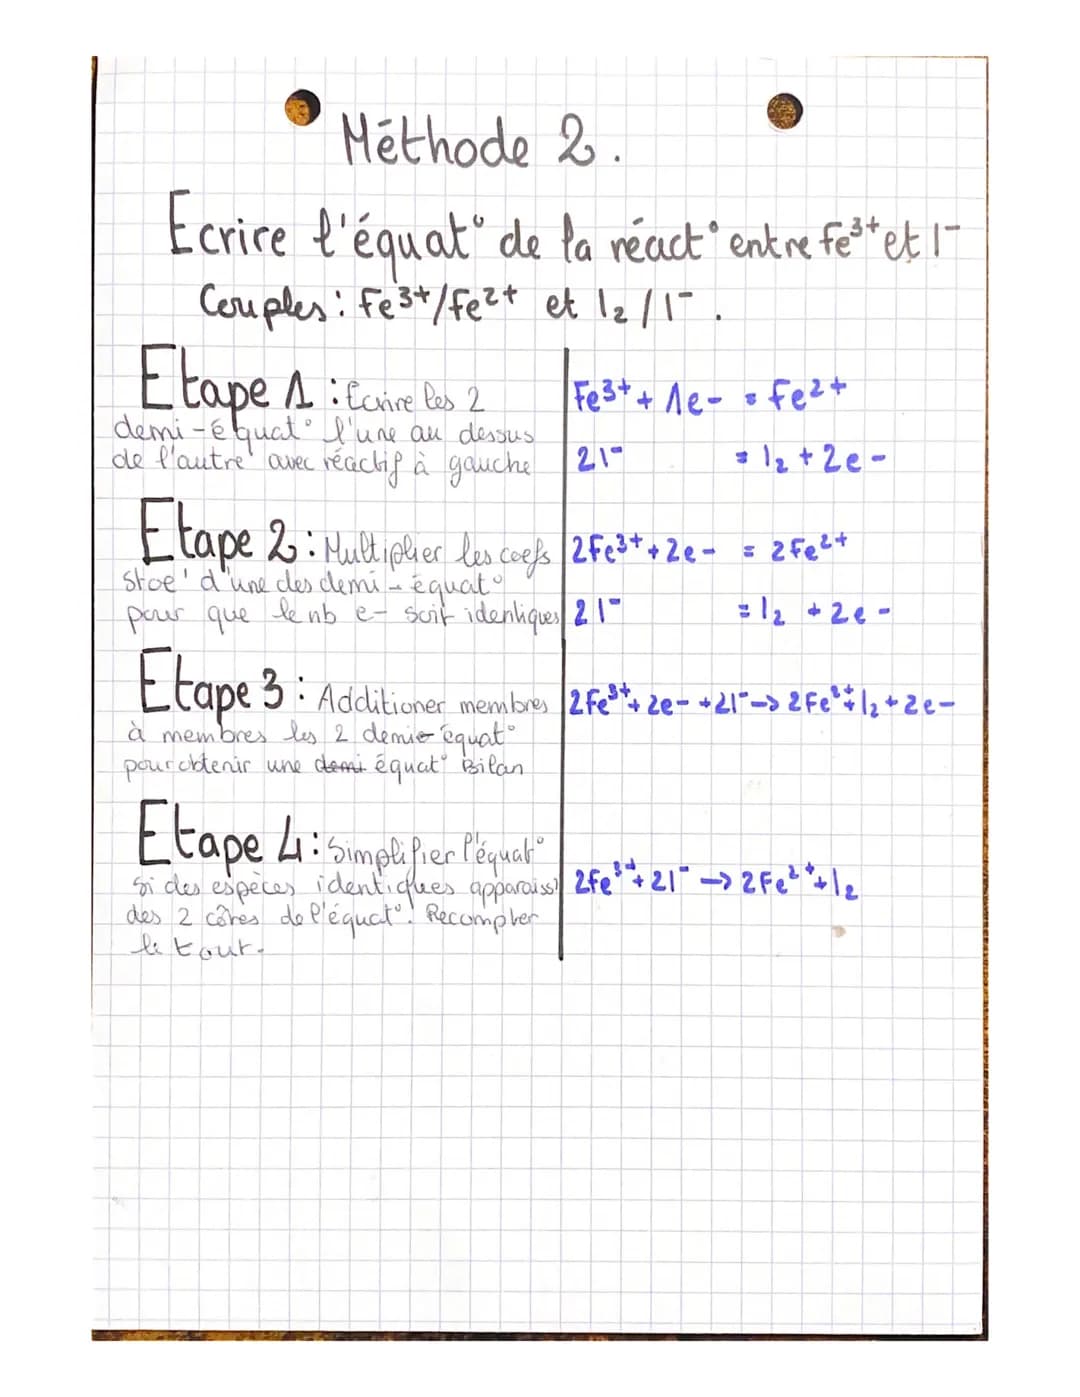 Méthode 2.
Ecrire l'équat° de la réact° entre Fe³⁺ et I⁻
Couples : Fe³⁺/Fe²⁺ et I₂/I⁻.
Etape 1 : Ecrire les 2
demi-équat° l'une au dessus
de l'autre avec réactif à gauche
Fe³⁺ + 1e- = Fe²⁺
2I⁻ = I₂ + 2e-
Etape 2 : Multiplier les coefs
stoe' d'une des demi-équat°
pour que le nb e- soit identiques
2Fe³⁺ + 2e- = 2Fe²⁺
2I⁻ = I₂ + 2e-
Etape 3 : Additioner membres
à membres les 2 demie équat°
pour obtenir une demi équat° Bilan
2Fe³⁺ + 2e- + 2I⁻ -> 2Fe²⁺ + I₂ + 2e-
Etape 4 : Simplifier l'équat°
si des espèces identiques apparaiss
des 2 côtes de l'équat°. Recompter
le tout.
2Fe³⁺ + 2I⁻ -> 2Fe²⁺ + I₂